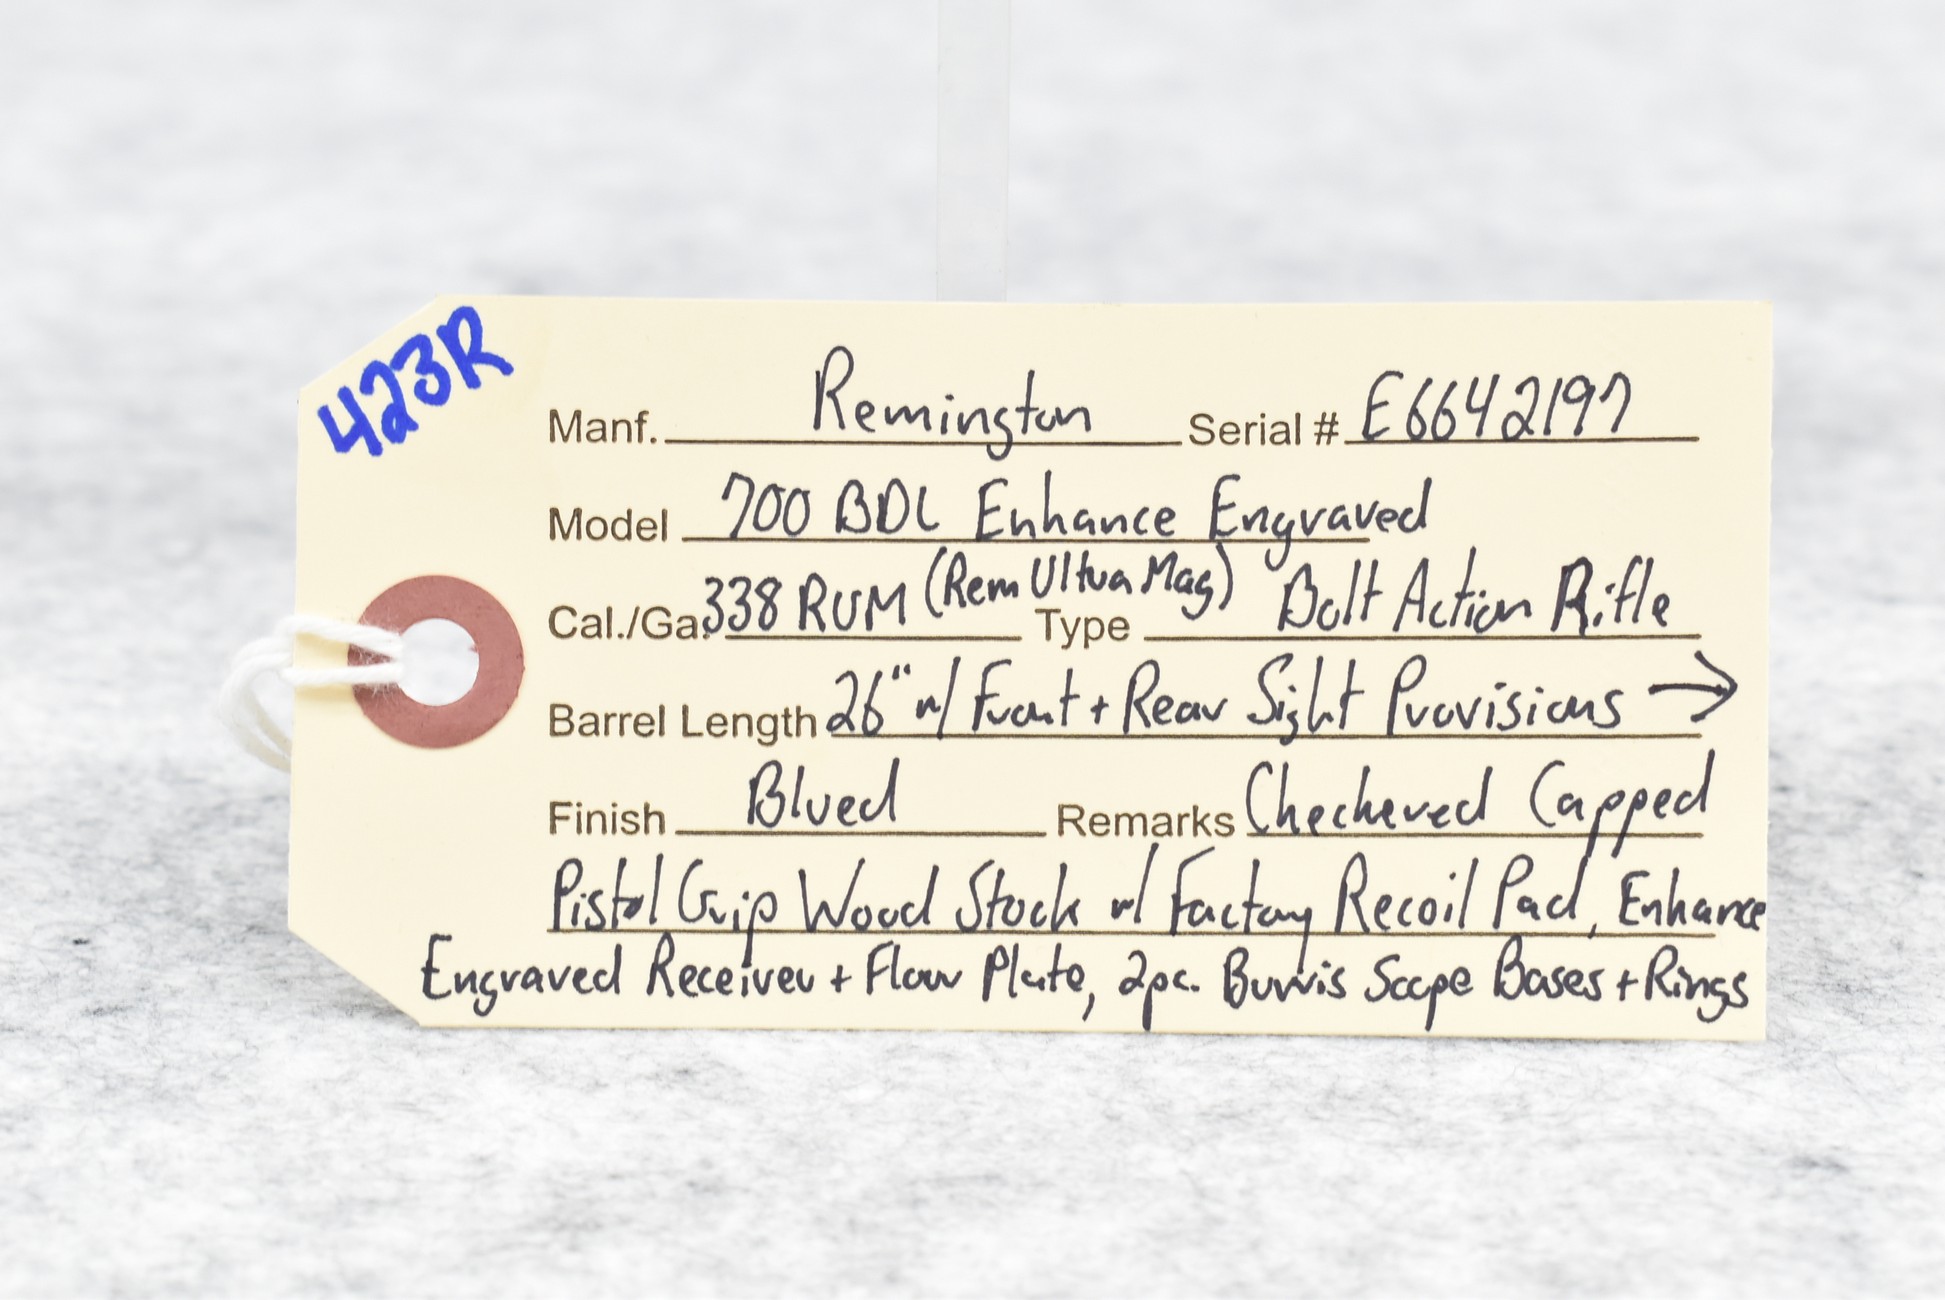 423R
Manf. Remington Serial # E6642197
Model 700 BDL Enhance Engraved
Cal./Ga. 338 RUM (Rem Ultra Mag) Type Bolt Action Rifle
Barrel Length 26" w/ Front + Rear Sight Provisions →
Finish Blued Remarks Checkered Capped
Pistol Grip Wood Stock w/ Factory Recoil Pad, Enhance
Engraved Receiver + Floor Plate, 2pc. Burris Scope Bases + Rings